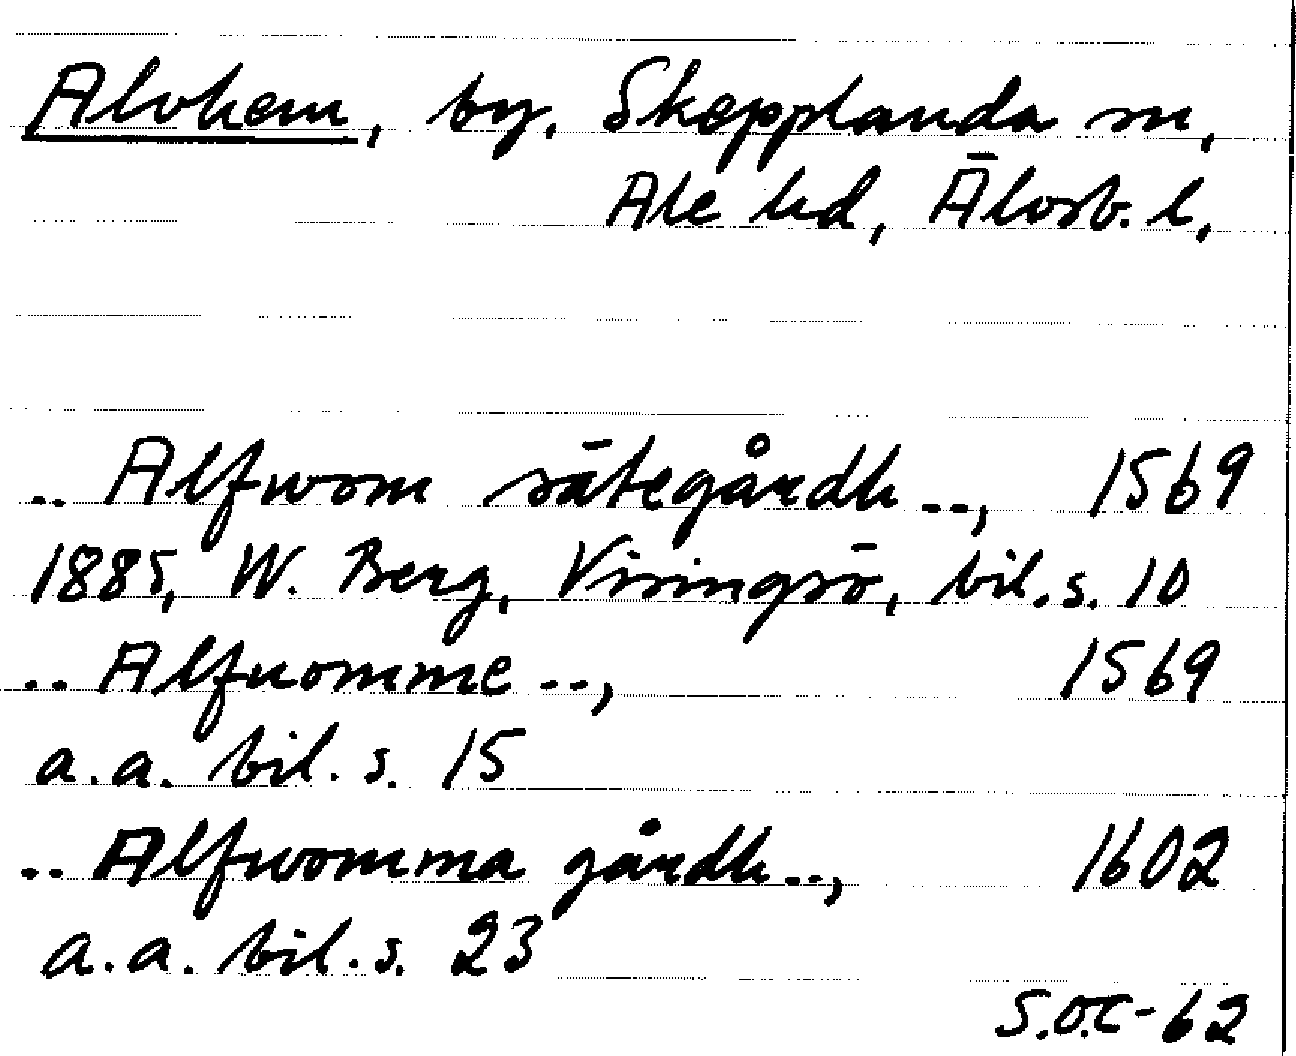 Alvhem, by, Skepplanda sn,
Ale hd, Älvsb. l,
.. Alfwom sätegårdh..., 1569
1885, W. Berg, Visingsö, bil. s. 10
.. Alfuomme..., 1569
a.a. bil. s. 15
.. Alfwomma gårdh..., 1602
a.a. bil. s. 23
S.O.C-62